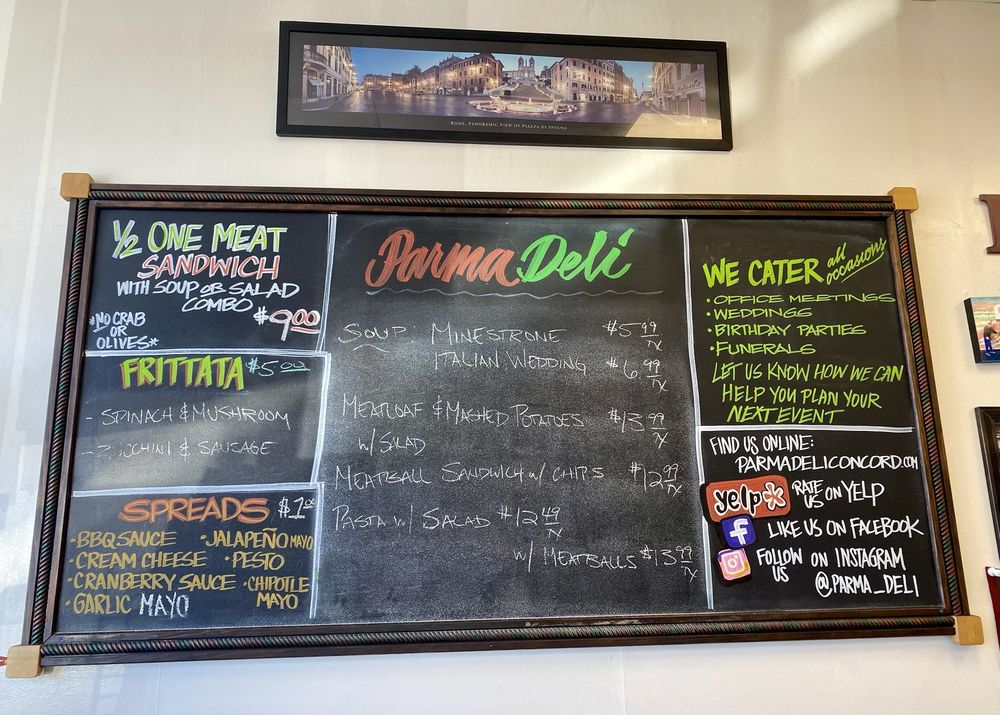 ROME, PANORAMIC VIEW OF PIAZZA DI SPAGNA
1/2 ONE MEAT
SANDWICH
WITH SOUP OR SALAD
COMBO
$9.00
*NO CRAB
OR
OLIVES*
FRITTATA $5.00
- SPINACH & MUSHROOM
- ZUCCHINI & SAUSAGE
SPREADS $1.00
•BBQ SAUCE •JALAPEÑO MAYO
•CREAM CHEESE •PESTO
•CRANBERRY SAUCE •CHIPOTLE
MAYO
•GARLIC MAYO
Parma Deli
SOUP: MINESTRONE $5.99 TX
ITALIAN WEDDING $6.99 TX
MEATLOAF & MASHED POTATOES $13.99 TX
W/ SALAD
MEATBALL SANDWICH W/ CHIPS $12.99 TX
PASTA W/ SALAD $12.49 TX
W/ MEATBALLS $13.99 TX
WE CATER all occasions
•OFFICE MEETINGS
•WEDDINGS
•BIRTHDAY PARTIES
•FUNERALS
LET US KNOW HOW WE CAN
HELP YOU PLAN YOUR
NEXT EVENT
FIND US ONLINE:
PARMADELICONCORD.COM
yelp RATE US ON YELP
f LIKE US ON FACEBOOK
FOLLOW US ON INSTAGRAM
@PARMA_DELI